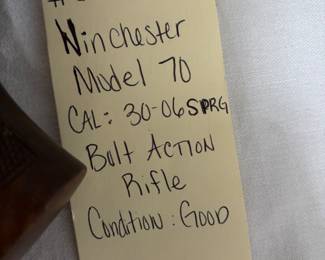 Winchester
Model 70
CAL: 30-06 SPRG
Bolt Action
Rifle
Condition: Good